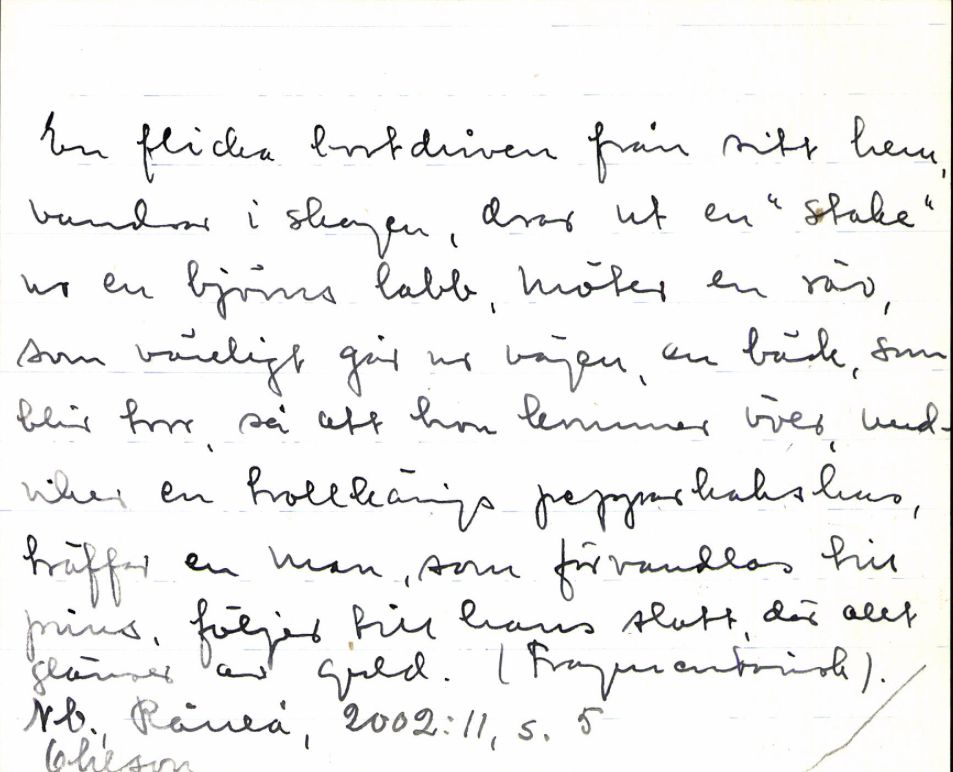 En flicka bortdriven från sitt hem,
vandrar i skogen, drar ut en "stake"
ur en björns labb, möter en räv,
som vänligt går ur vägen, en bäck, som
blir torr, så att hon kommer över, und-
viker en trollkärings pepparkakshus,
träffar en man, som förvandlas till
prins, följer till hans slott, där allt
glänser av guld. (Fragmentarisk).
Nb., Råneå, 2002:11, s. 5